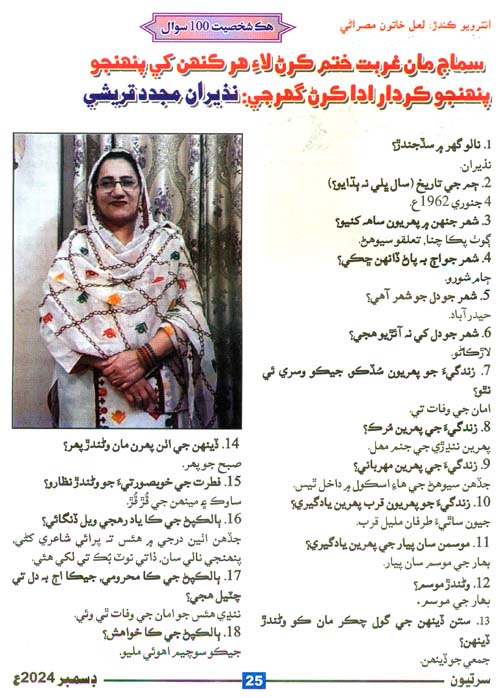 انٽرويو ڪندڙ: لعل خاتون مصراڻي
هڪ شخصيت 100 سوال
سماج مان غربت ختم ڪرڻ لاءِ هر ڪنهن کي پنهنجو
پنهنجو ڪردار ادا ڪرڻ گهرجي: نذيران مجدد قريشي
1. نالو گهر ۾ سڏجندڙ؟
نذيران.
2. جنم جي تاريخ (سال ڀلي نہ ٻڌايو؟)
4 جنوري 1962ع.
3. شهر جنهن ۾ پهريون ساهہ کنيو؟
ڳوٺ پڪا چنا, تعلقو سيوهڻ.
4. شهر جو اڄ بہ پاڻ ڏانهن ڇڪي؟
ڄام شورو.
5. شهر جو دل جو شهر آهي؟
حيدرآباد.
6. شهر جو دل کي نہ آئڙيو هجي؟
لاڙڪاڻو.
7. زندگيءَ جو پهريون سُڏڪو, جيڪو وسري ئي
نٿو؟
امان جي وفات تي.
8. زندگيءَ جي پهرين مُرڪ؟
پهرين ننڍڙي جي جنم مهل.
9. زندگيءَ جي پهرين مهرباني؟
جڏهن سيوهڻ جي هاءِ اسڪول ۾ داخل ٿيس.
10. زندگيءَ جو پهريون قرب پهرين يادگيري؟
جيون ساٿيءَ طرفان مليل قرب.
11. موسمن سان پيار جي پهرين يادگيري؟
بهار جي موسم سان پيار.
12. وڻندڙ موسم؟
بهار جي موسم.
13. ستن ڏينهن جي گول چڪر مان ڪو وڻندڙ
ڏينهن؟
جمعي جو ڏينهن.
14. ڏينهن جي اٺن پهرن مان وڻندڙ پهر؟
صبح جو پهر.
15. فطرت جي خوبصورتيءَ جو وڻندڙ نظارو؟
ساوڪ ۽ مينهن جي ڦُڙ ڦُڙ.
16. ٻالڪپڻ جي ڪا ياد رهجي ويل ڏنگائي؟
جڏهن اٺين درجي ۾ هئس تہ پرائي شاعري کڻي,
پنهنجي نالي سان, ذاتي نوٽ بُڪ تي لکي هئي.
17. ٻالڪپڻ جي ڪا محرومي, جيڪا اڄ بہ دل تي
چٽيل هجي؟
ننڍي هئس جو امان جي وفات ٿي وئي.
18. ٻالڪپڻ جي ڪا خواهش؟
جيڪو سوچيم اهوئي مليو.
سرتيون
25
ڊسمبر 2024ع